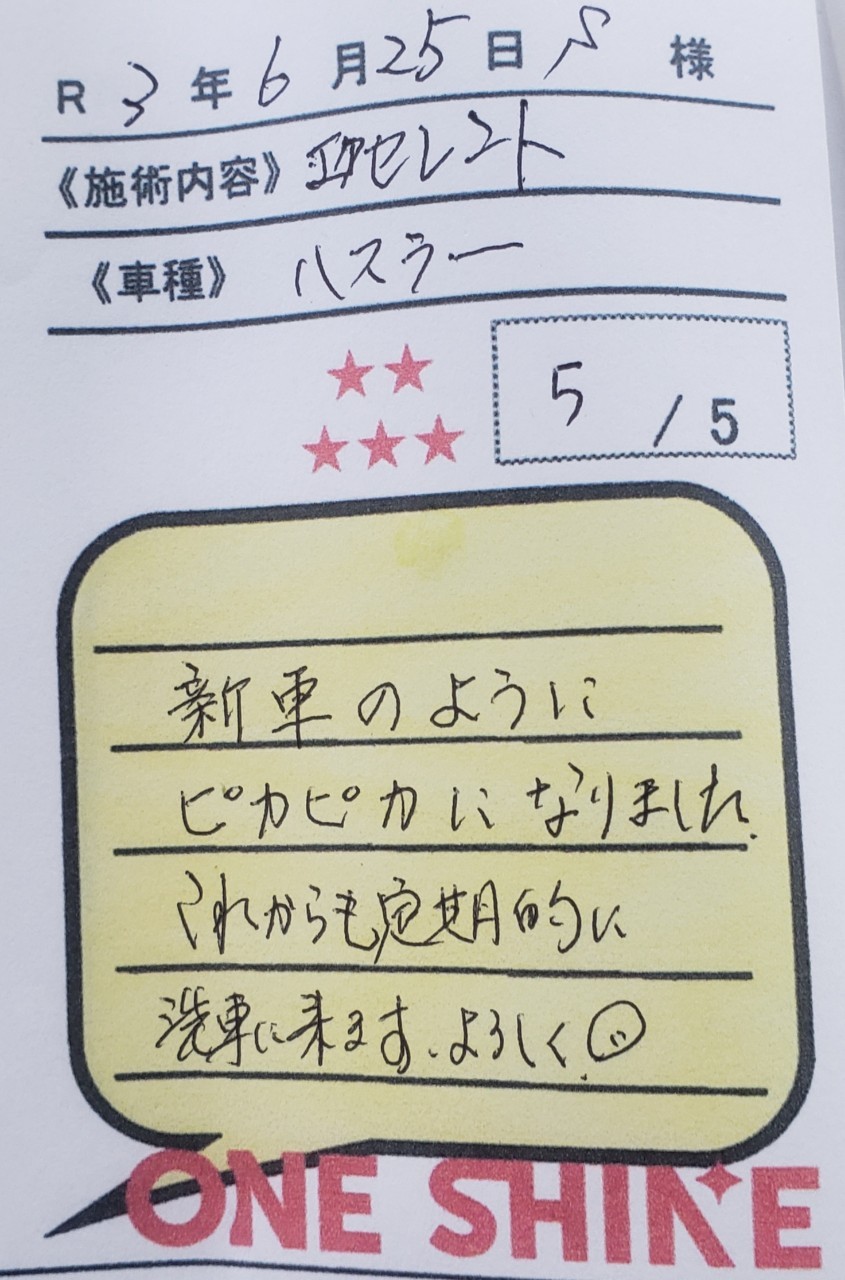 R 3 年 6 月 25 日 S 様
《施術内容》
《車種》 ハスラー
5 / 5
新車のように
ピカピカになりました.
これからも定期的に
洗車に来ます.よろしく
ONE SHINE